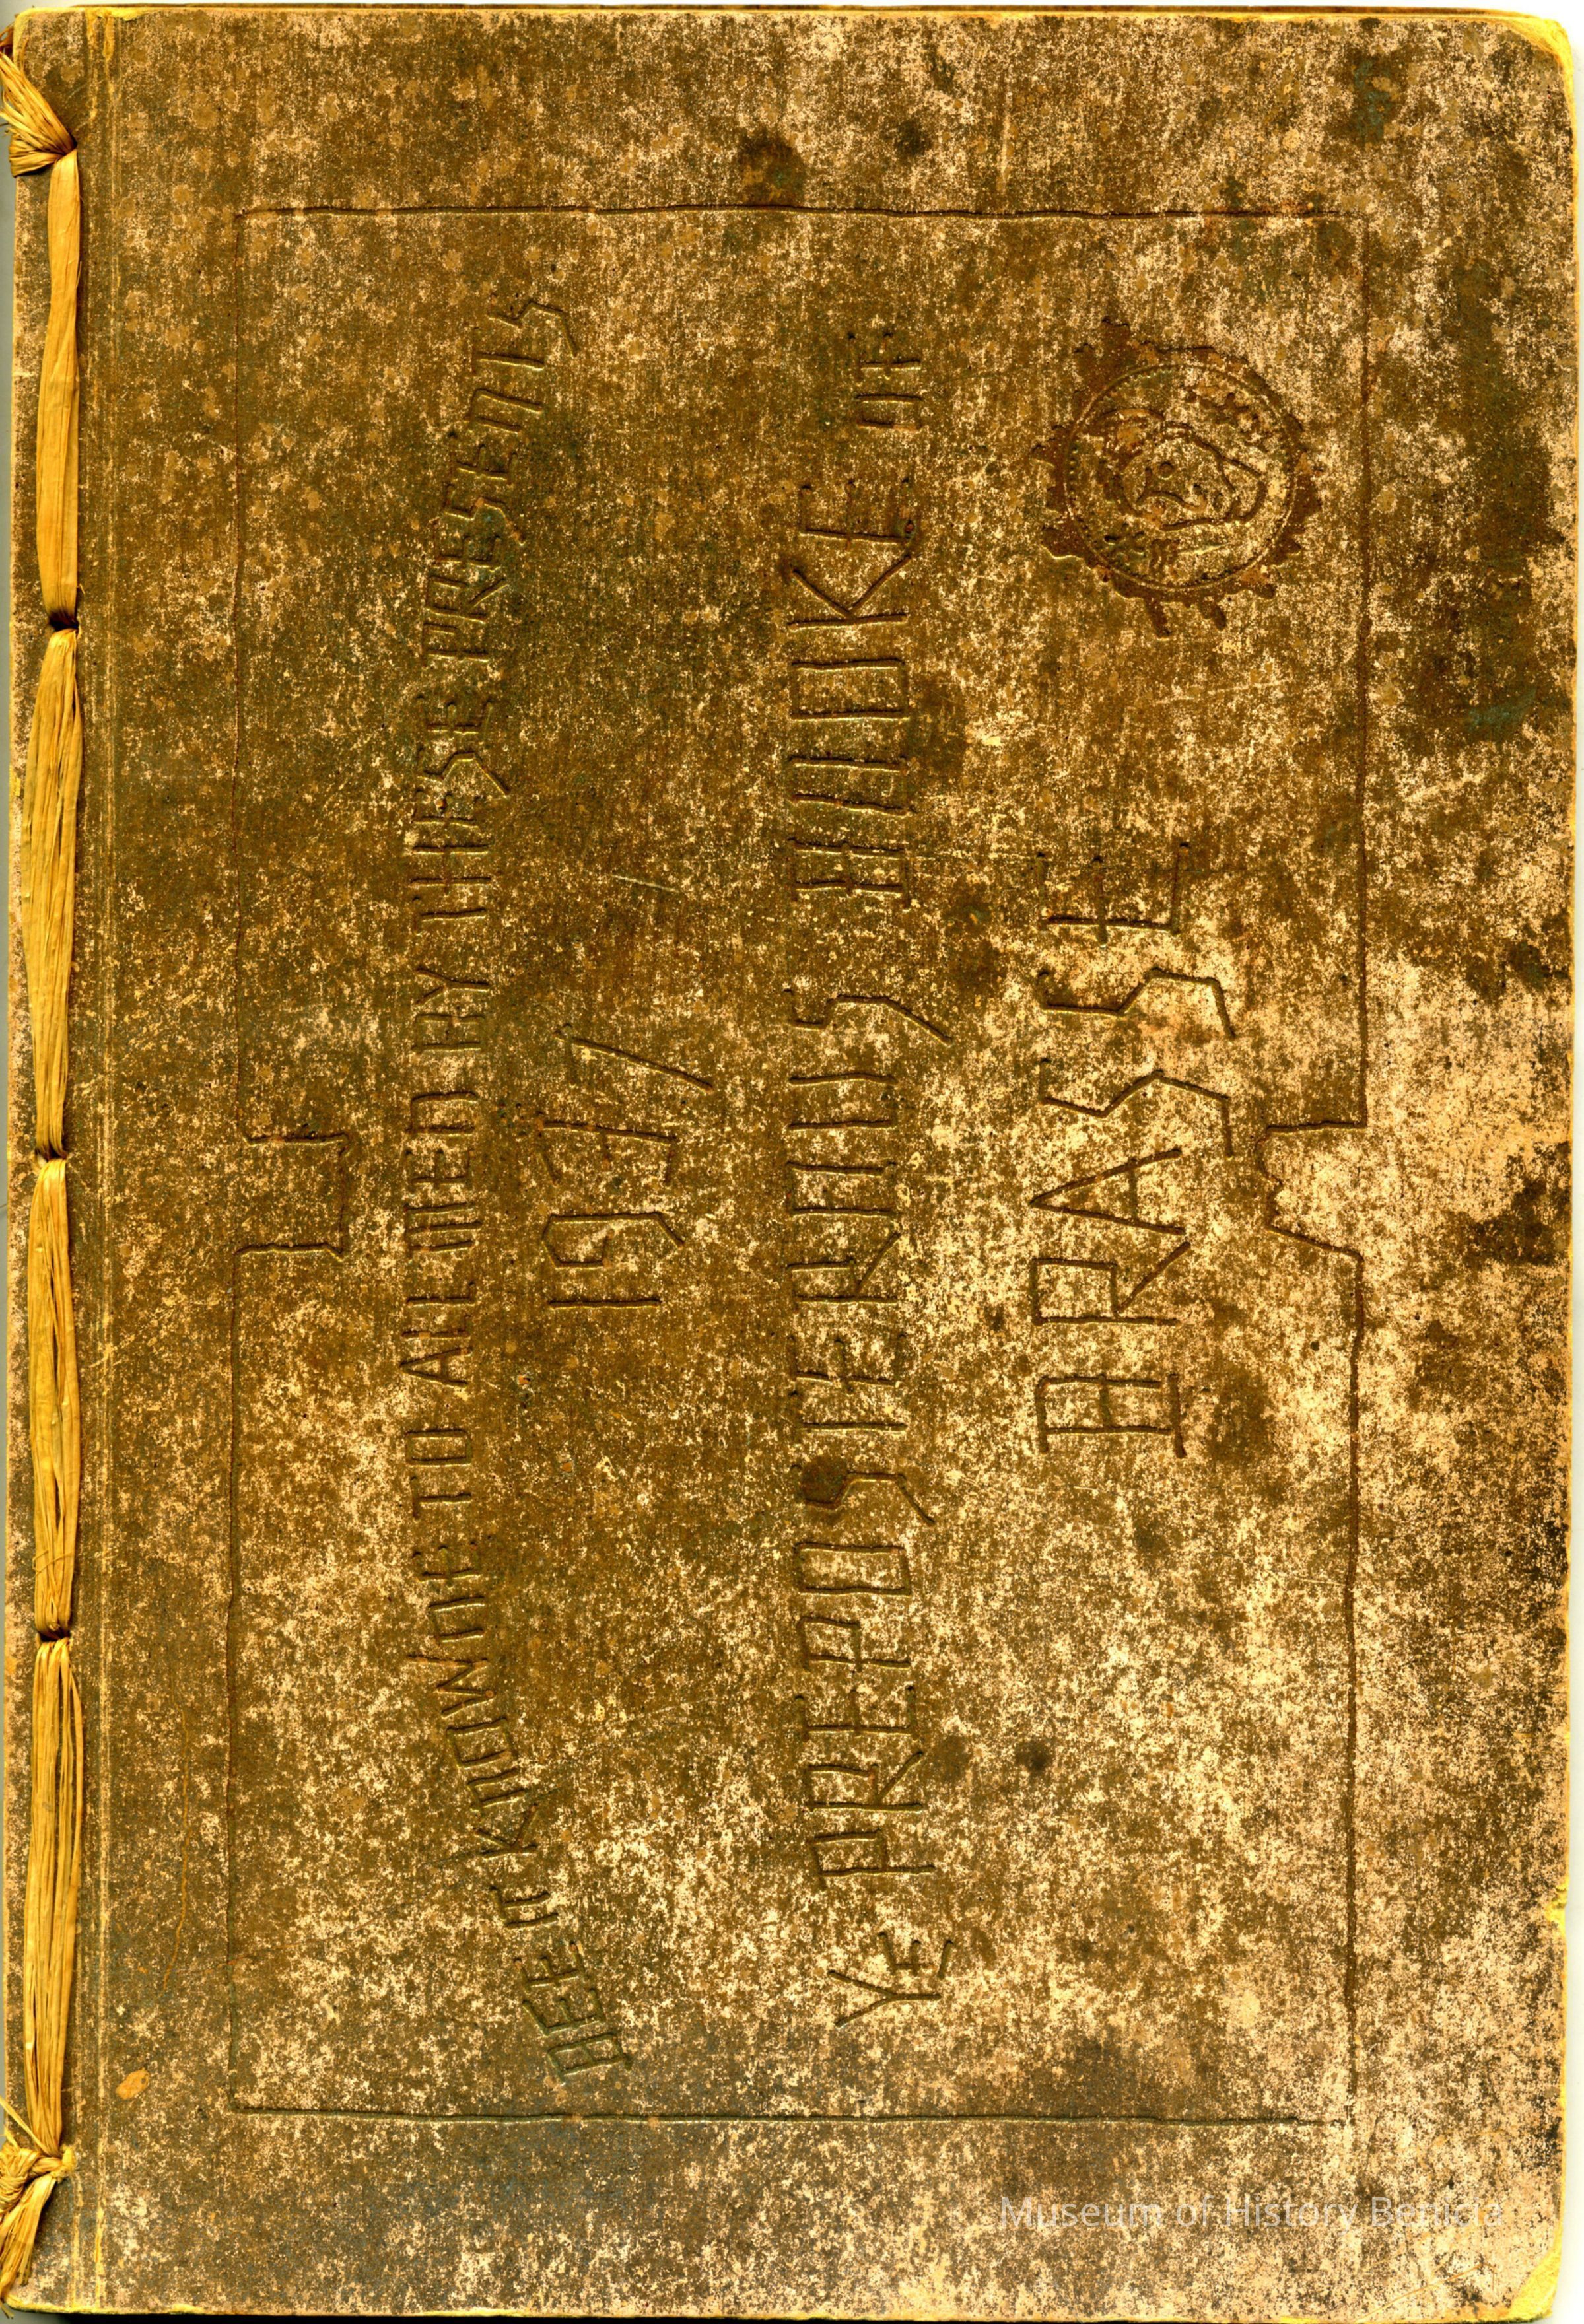 BEE IT KNOWNE TO ALL MEN BY THESE PRESENTS
1937
YE PREPOSTEROUS BOOKE OF
BRASSE
Museum of History Benicia